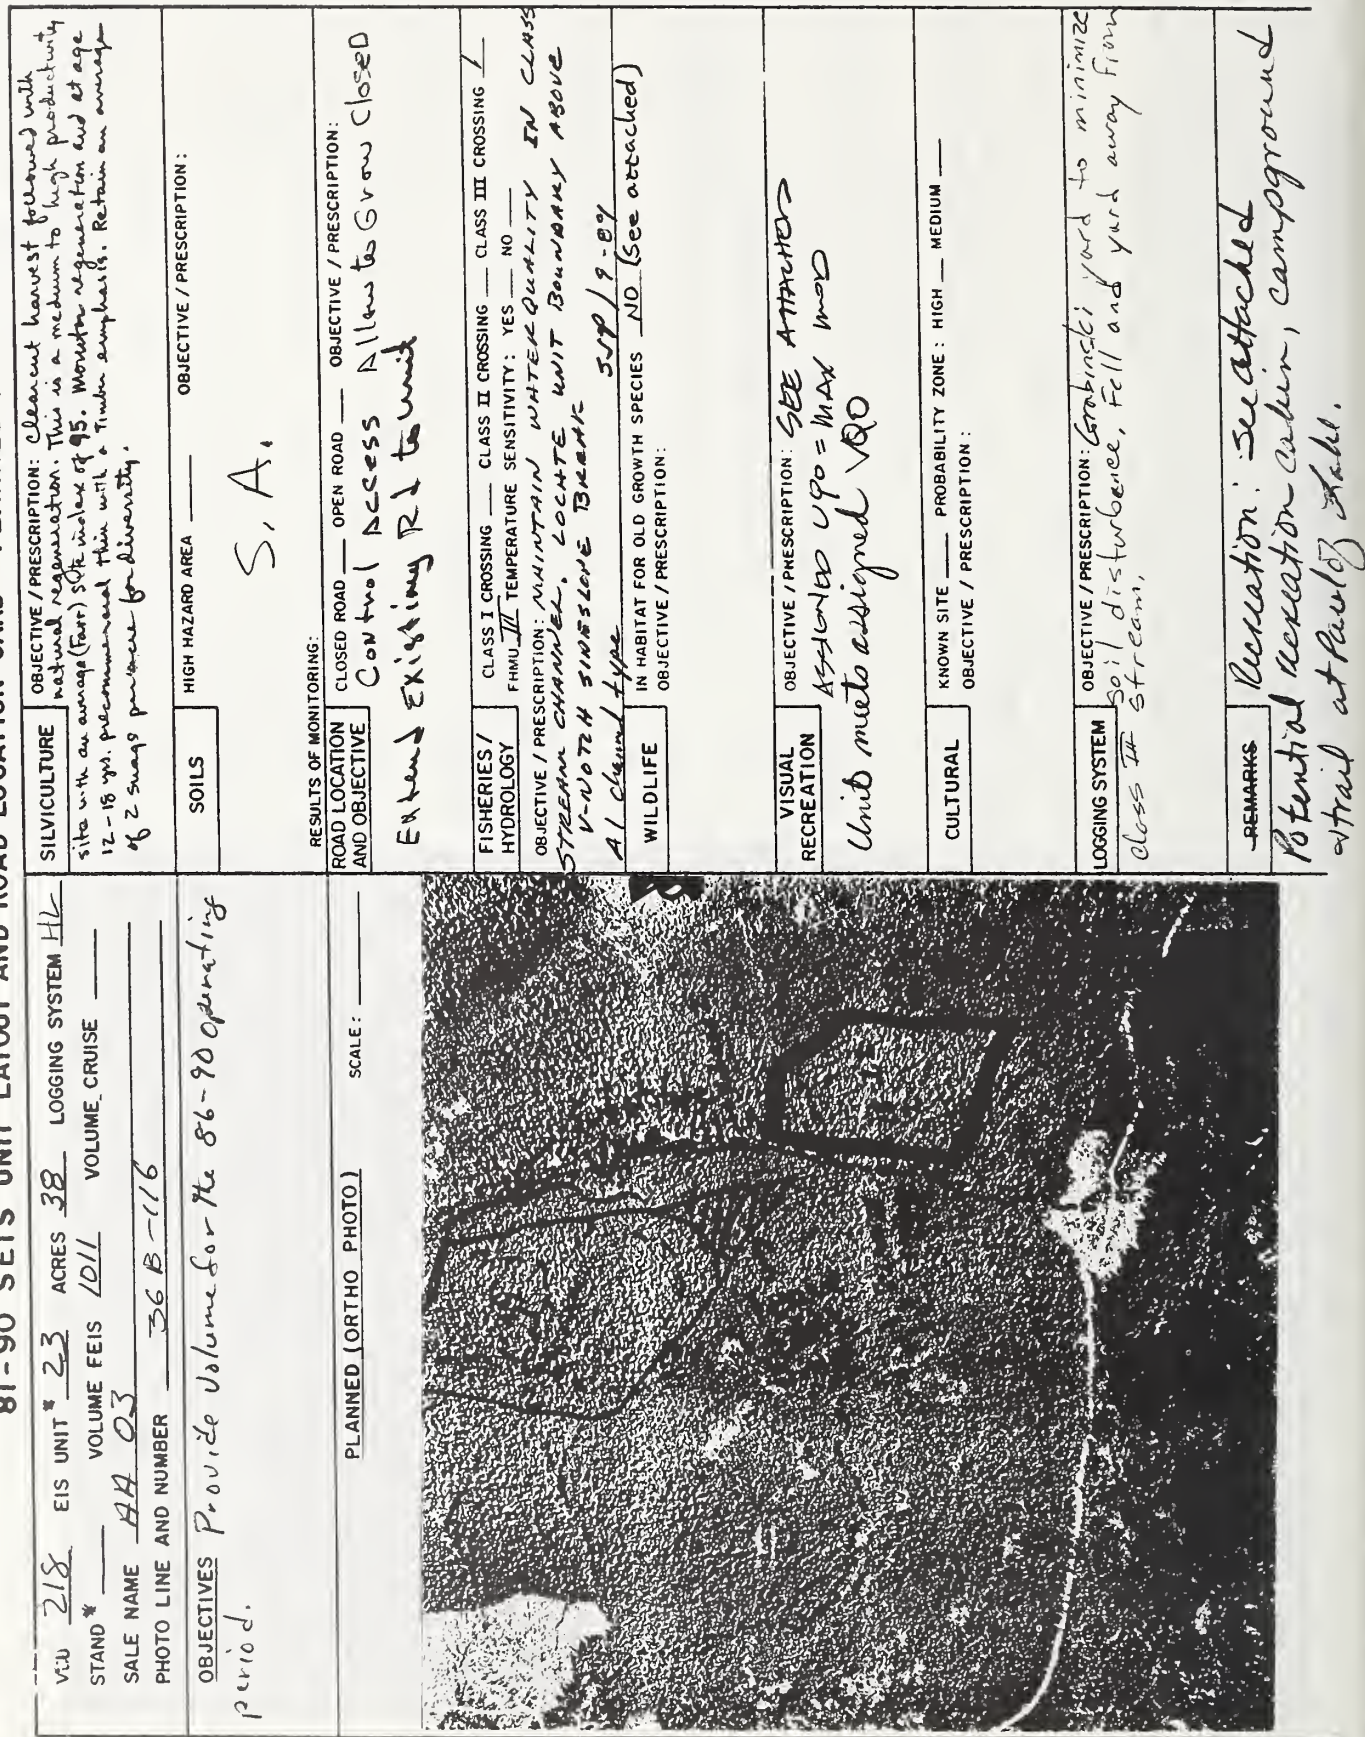 81-90 SEIS UNIT LAYOUT AND ROAD LOCATION CARD
VCU 218 EIS UNIT # 23 ACRES 38 LOGGING SYSTEM HL
STAND # ____ VOLUME FEIS 1011 VOLUME CRUISE ____
SALE NAME AA 03
PHOTO LINE AND NUMBER 36 B-116
OBJECTIVES Provide Volume for the 86-90 operating
period.
PLANNED (ORTHO PHOTO) SCALE: ____
SILVICULTURE OBJECTIVE / PRESCRIPTION: Clearcut harvest followed with
natural regeneration. This is a medium to high productivity
site with an average (Farr) site index of 95. Monitor regeneration and at age
12-18 yrs. precommercial thin with a Timber emphasis. Retain an average
of 2 snags per acre for diversity.
SOILS HIGH HAZARD AREA ____ OBJECTIVE / PRESCRIPTION:
S. A.
RESULTS OF MONITORING:
ROAD LOCATION AND OBJECTIVE CLOSED ROAD ____ OPEN ROAD ____ OBJECTIVE / PRESCRIPTION:
Control Access Allow to Grow Closed
Extend Existing Rd to unit
FISHERIES / HYDROLOGY CLASS I CROSSING ____ CLASS II CROSSING ____ CLASS III CROSSING 1
FHMU III TEMPERATURE SENSITIVITY: YES ____ NO ____
OBJECTIVE / PRESCRIPTION: MAINTAIN WATER QUALITY IN CLASS
STREAM CHANNEL. LOCATE UNIT BOUNDARY ABOVE
V-NOTCH SIDESLOPE BREAK
A1 channel type
WILDLIFE IN HABITAT FOR OLD GROWTH SPECIES NO (See attached)
OBJECTIVE / PRESCRIPTION:
VISUAL RECREATION OBJECTIVE / PRESCRIPTION: SEE ATTACHED
ASSIGNED VQO = MAX MOD
Unit meets assigned VQO
CULTURAL KNOWN SITE ____ PROBABILITY ZONE: HIGH __ MEDIUM __
OBJECTIVE / PRESCRIPTION:
LOGGING SYSTEM OBJECTIVE / PRESCRIPTION: yard to minimize
soil disturbance, Fell and yard away from
class III stream.
REMARKS Recreation: see attached
Potential recreation cabin, campground
trail at Lake.